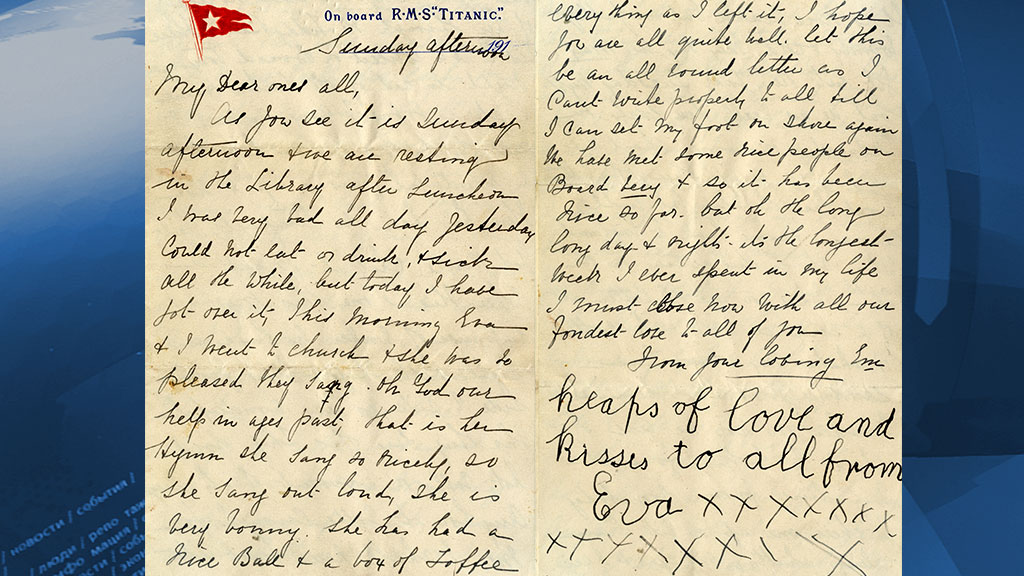 On board R·M·S "TITANIC."
191
Sunday afternoon
My Dear ones all,
As you see it is Sunday
afternoon & we are resting
in the Library after Luncheon
I was very bad all day yesterday
Could not eat or drink, & sick
all the while, but today I have
got over it, This morning Eva
& I went to church & she was so
pleased they sang. Oh God our
help in ages past, that is her
Hymn she sang so nicely, so
she sang out loud, she is
very bonny. she has had a
nice Ball & a box of Toffee
everything as I left it, I hope
you are all quite well. let this
be an all round letter as I
Cant write properly to all till
I can set my foot on shore again
We have met some nice people on
Board Lucy & so it has been
Nice so far. but oh the long
long day & nights. its the longest
Week I ever spent in my life
I must close now with all our
fondest love to all of you
From your loving Em
heaps of love and
kisses to all from
Eva x x x x x x x x
x x x x x x x
новости / события /
люди / репо